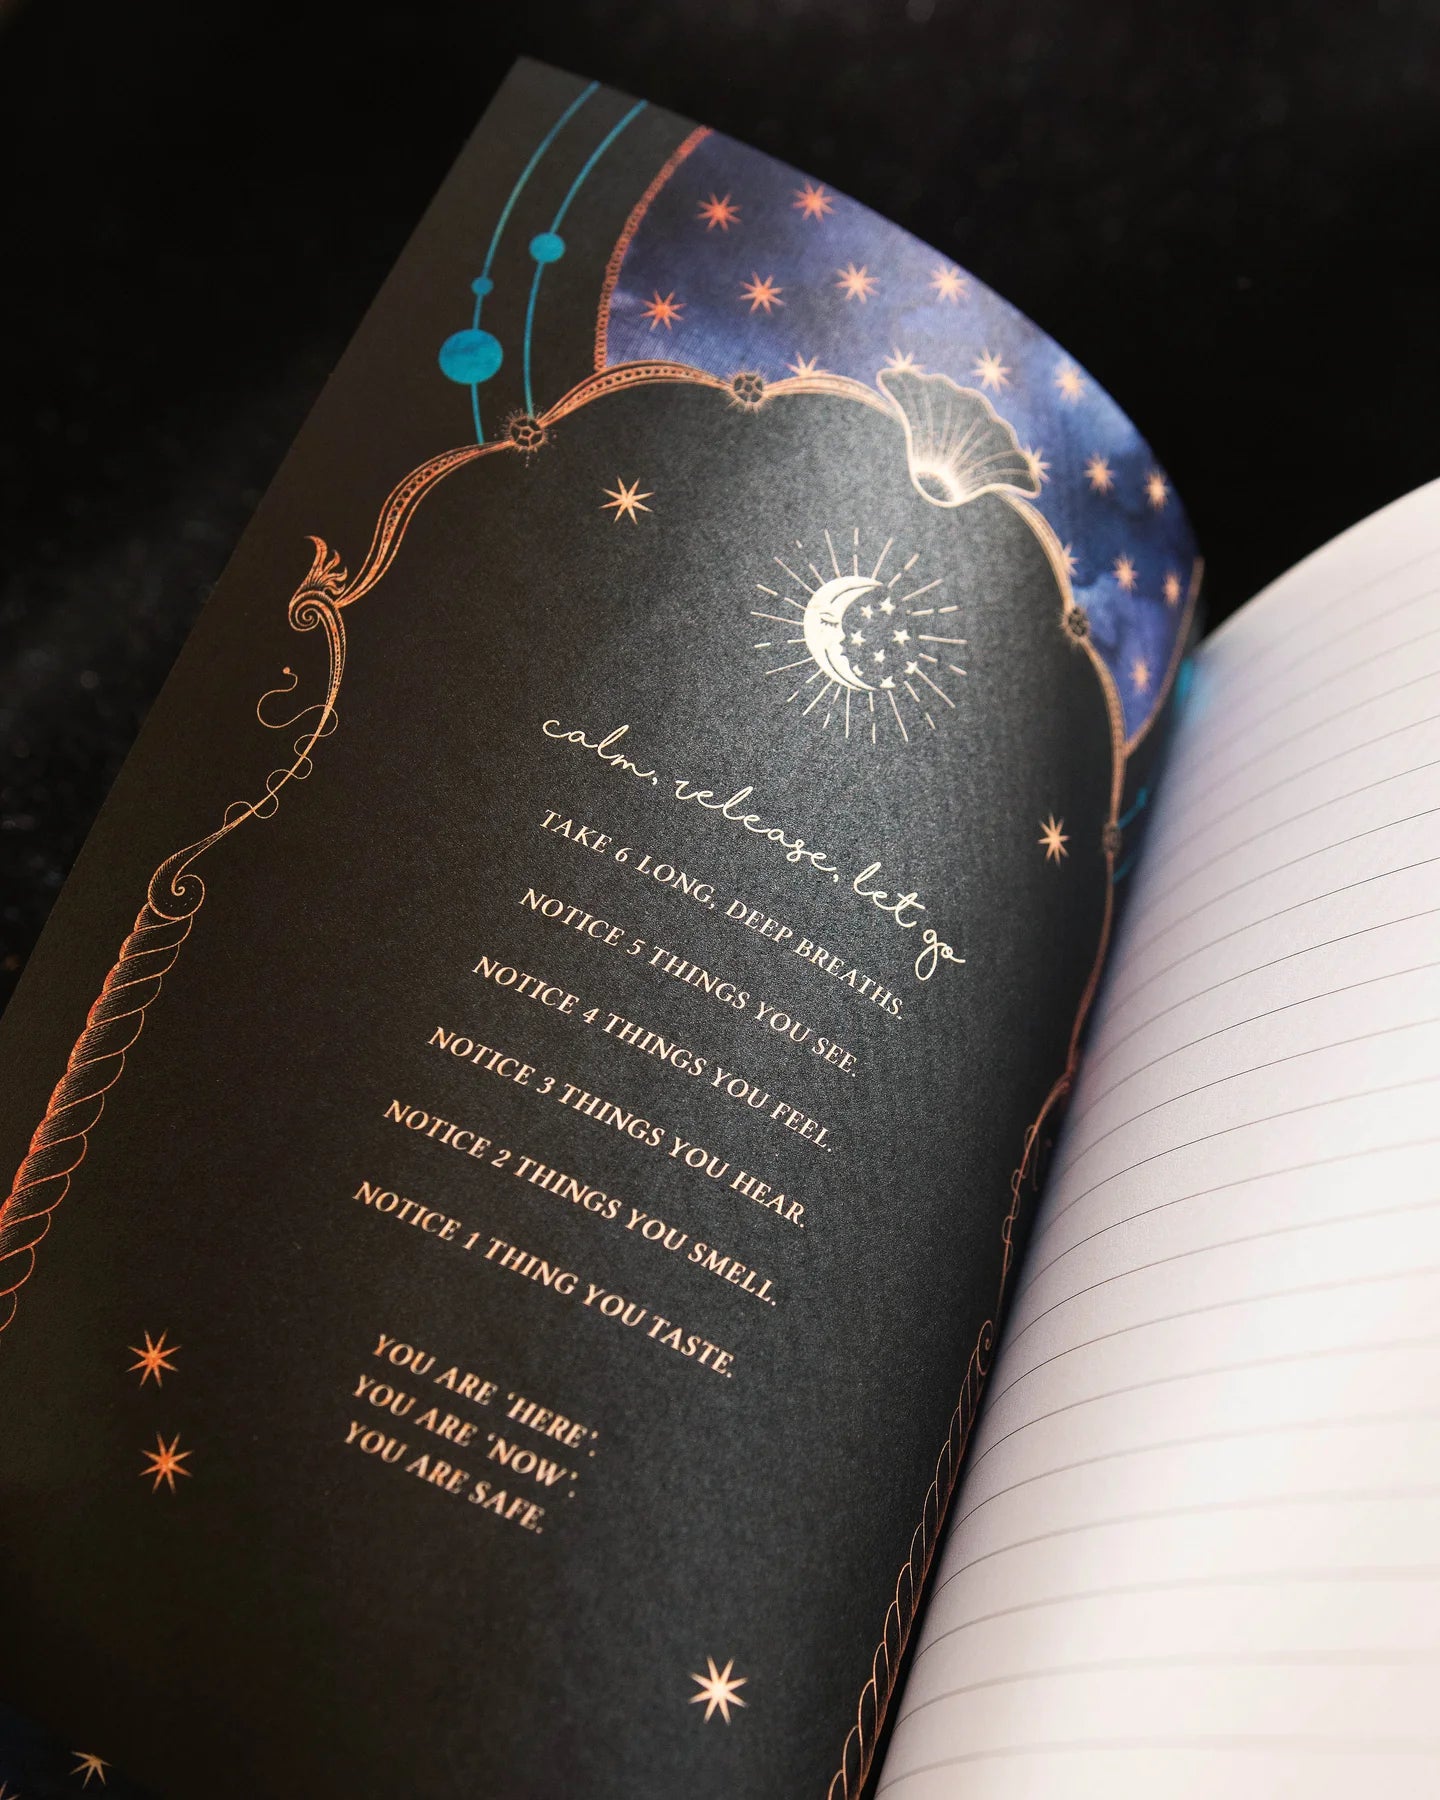 calm, release, let go
TAKE 6 LONG, DEEP BREATHS.
NOTICE 5 THINGS YOU SEE.
NOTICE 4 THINGS YOU FEEL.
NOTICE 3 THINGS YOU HEAR.
NOTICE 2 THINGS YOU SMELL.
NOTICE 1 THING YOU TASTE.
YOU ARE ‘HERE’.
YOU ARE ‘NOW’.
YOU ARE SAFE.